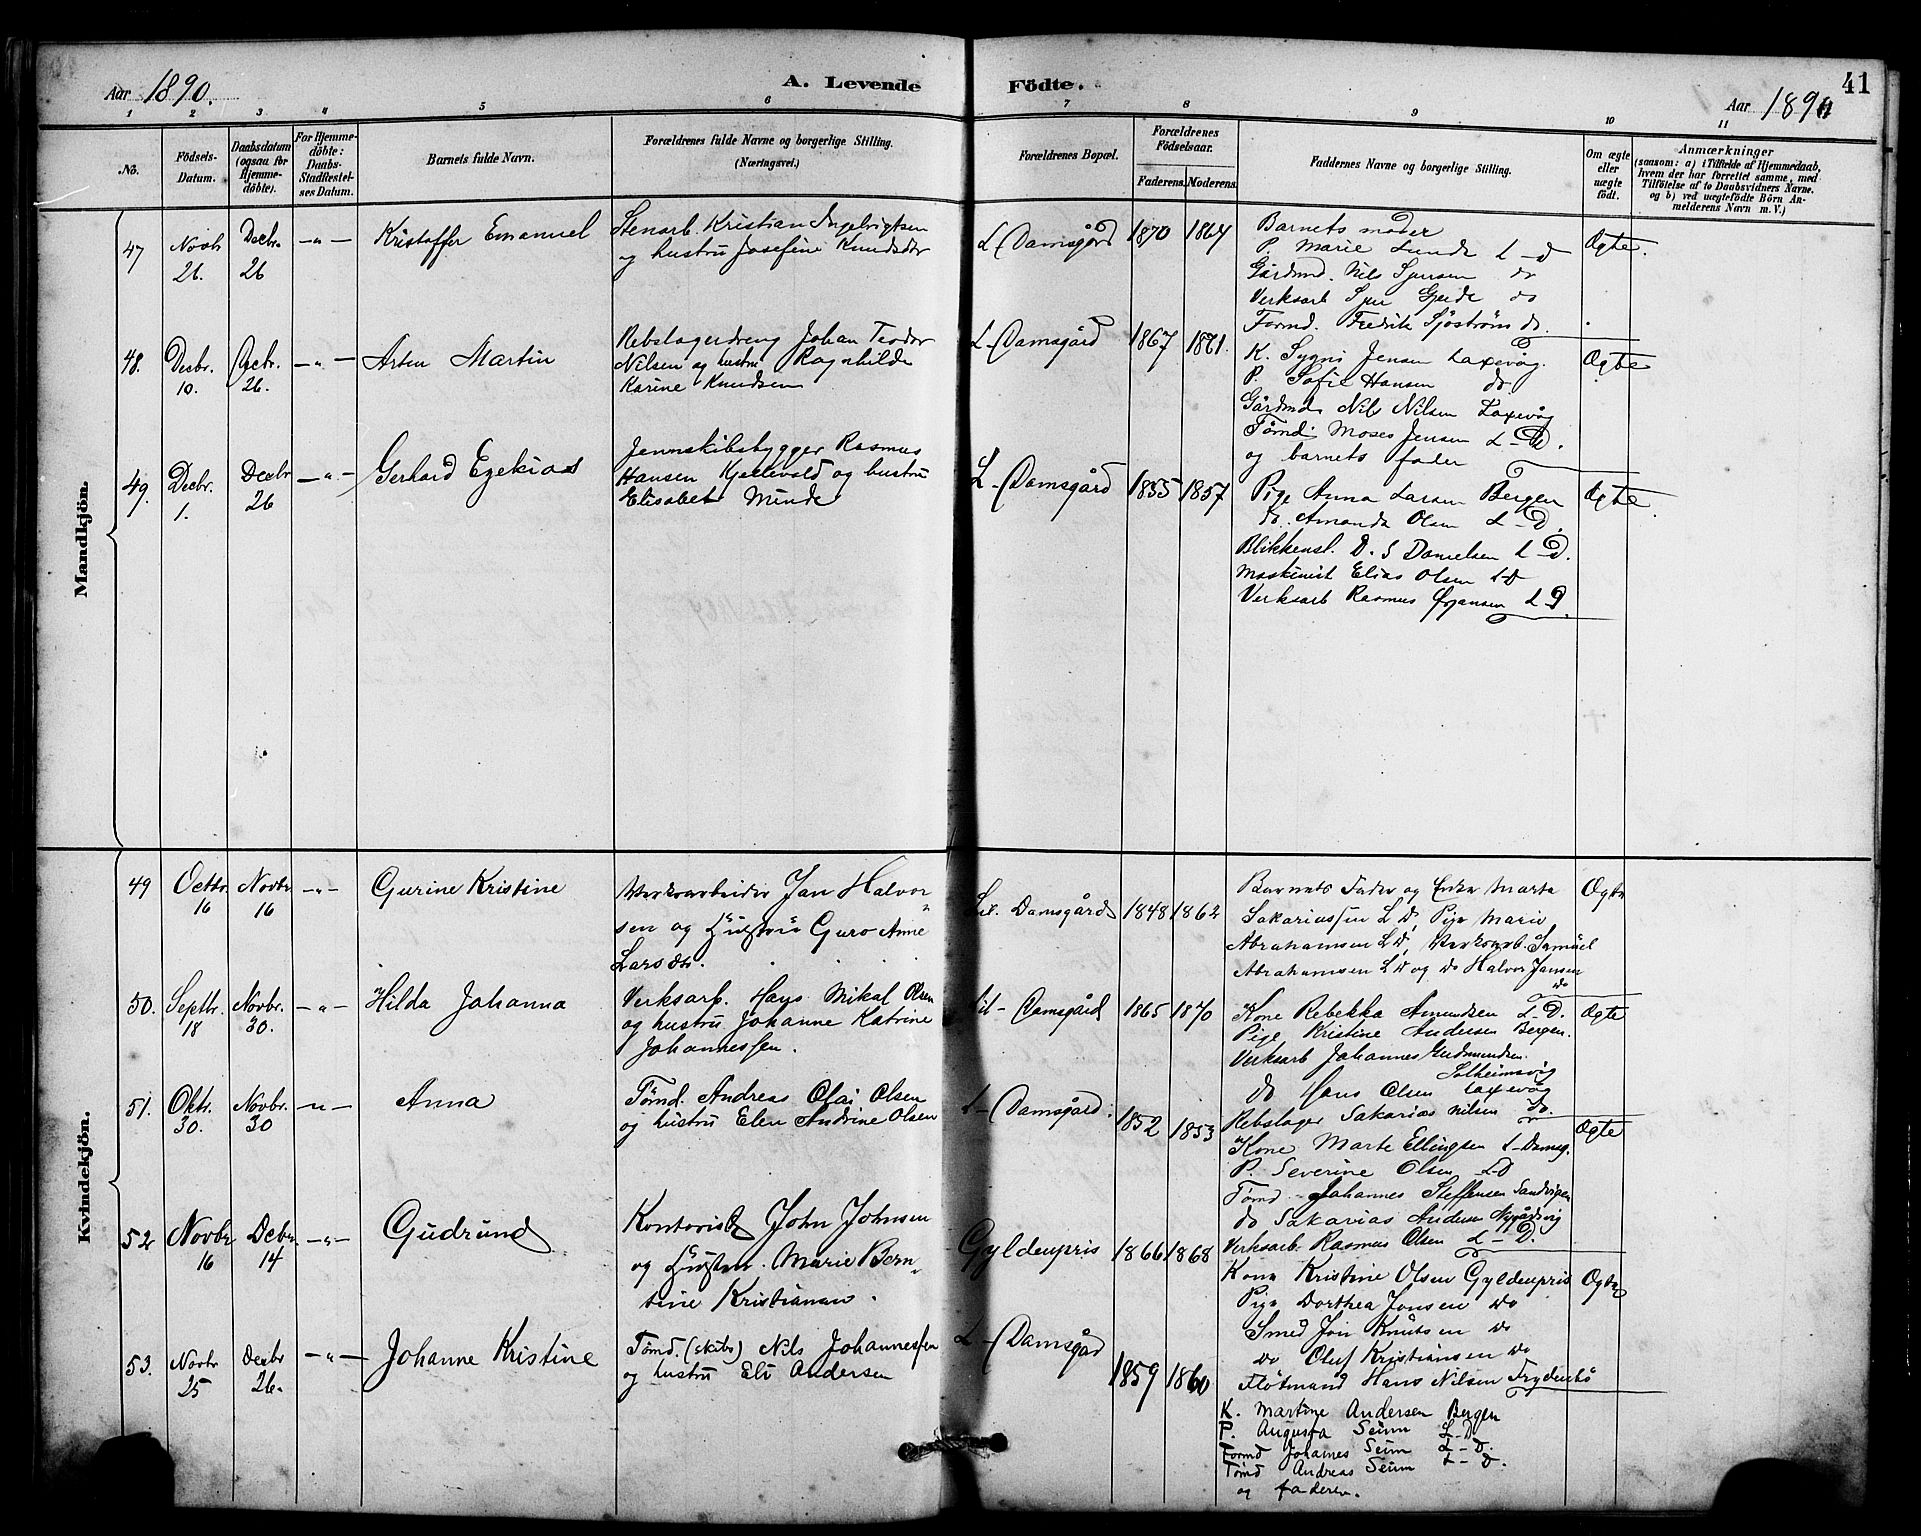 Aar 1890.
A. Levende
Födte.
41
Aar 1890
1 2 3 4 5 6 7 8 9 10 11
No.
Födsels-Datum.
Daabsdatum (ogsaa for Hjemme-döbte).
For Hjemme-döbte: Daabs-Stadfestel-ses Datum.
Barnets fulde Navn.
Forældrenes fulde Navne og borgerlige Stilling.
(Næringsvei.)
Forældrenes Bopæl.
Forældrenes Födselsaar.
Faderens. Moderens.
Faddernes Navne og borgerlige Stilling.
Om ægte eller uægte födt.
Anmærkninger
(saasom: a) i Tilfelde af Hjemmedaab,
hvem der har forrettet samme, med
Tilföielse af to Daabsvidners Navne.
og b) ved uægtefödte Börn An-
melderens Navn m. V.)
Mandkjön.
47 Novbr. 26. Decbr. 26 -"- Kristoffer Emanuel
Stenarb. Kristian Ingebrigtsen
og hustru Josefine Knudsdtr
L-Damsgård 1870 1864
Barnets moder
P. Marie Lunde L-D
Gårdmd. Nils Sjursen do
Verksarb Sjur Gjerde do
Formd. Fredrik Sjöström do.
Ægte.
48. Decbr. 10. Decbr. 26. -"- Arten Martin
Rebslagerdreng Johan Teodor
Nilsen og hustru Ragnhilde
Karine Knudsen
L-Damsgård 1867 1861.
K. Sygni Jensen Laxevåg.
P. Sofie Hansen do
Gårdmd Nils Nilsen Laxevåg
Tömd. Moses Jensen L-D.
og barnets fader
Ægte
49. Decbr. 1. Decbr 26 -"- Gerhard Ezekias
Jernskibsbygger Rasmus
Hansen Kjellevold og hustru
Elisabet Minde
L-Damsgård 1855 1857
Pige Anna Larsen Bergen
K. Amanda Olsen L-D.
Blikkensl. D. S Danielsen L-D.
Maskinist Elias Olsen L-D
Verksarb Rasmus Ørjansen L D.
Ægte
Kvindekjön.
49 Octbr. 16 Novbr 16 -"- Gurine Kristine
Verksarbeider Jan Halvor-
sen og Hustru Guro Anne
Larsdtr.
Lil. Damsgård 1848 1862
Barnets Fader og Enke Marta
Sakariassen L D, Pige Marie
Abrahamsen L D, Verksarb. Samuel
Abrahamsen L D og do Halvor Jansen
do
Ægte
50. Septbr. 18 Novbr. 30. -"- Hilda Johanna
Verksarb. Hans Mikal Olsen
og hustru Johanne Katrine
Johannessen.
Lil-Damsgård 1865 1870
Kone Rebekka Amundsen L-D.
Pige Kristine Andersen Bergen.
Verksarb Johannes Gudmundsen
Solheimsvig
do Hans Olsen Laxevåg
Rebslager Sakarias Nilsen do.
Ægte
51. Oktr. 30. Novbr. 30 -"- Anna
Tømd. Andreas Olai Olsen
og hustru Elen Andrine Olsen
L-Damsgård. 1852 1853
Kone Marte Ellingsen L-Damsg.
P. Severine Olsen L-D
Tømd Johannes Steffensen Sandvigen
do Sakarias Andersen Nygårdsvig
Verksarb. Rasmus Olsen L-D.
Ægte
52 Novbr 16 Debr 14 -"- Gudrund
Kontorist John Johnsen
og Hustru. Marie Bern-
tine Kristiansen.
Gyldenpris 1866 1868
Kone Kristine Olsen Gyldenpris
Pige Dorthea Jonsen do
Smed Jon Knutsen do
do Oluf Kristiansen do
Flötmand Hans Nilsen Frydenbö
Ægte
53. Novbr 25 Decbr 26. -"- Johanne Kristine
Tömd. (skibs) Nils Johannessen
og hustru Eli Andersen
L-Damsgård 1859 1860
K. Martine Andersen Bergen
P. Augusta Seim L-D
Tormd Johannes Seim L-D.
Tömd Andreas Seim L-D.
og faderen.